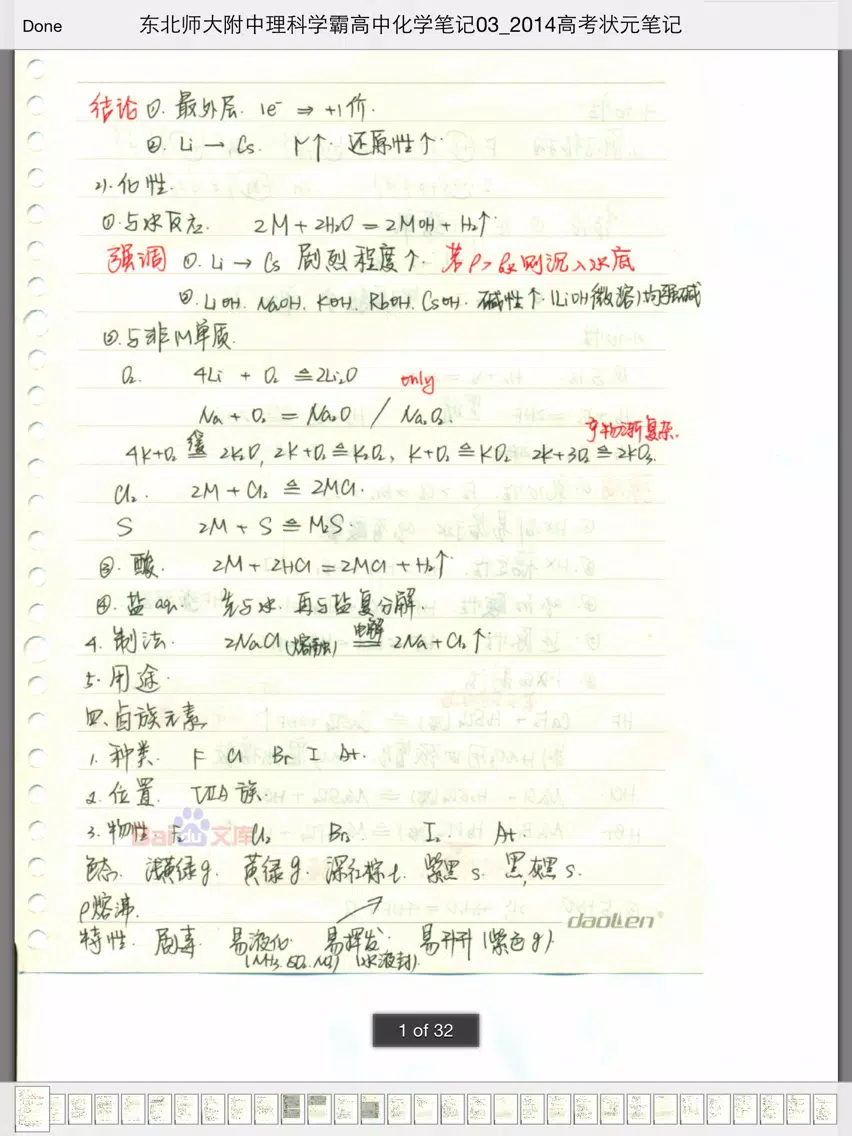 Done
东北师大附中理科学霸高中化学笔记03_2014高考状元笔记
结论 ①. 最外层. 1e⁻ ⇒ +1价.
②. Li → Cs. r↑. 还原性↑.
2). 化性.
①.与水反应. 2M + 2H₂O = 2MOH + H₂↑.
强调 ①. Li → Cs 剧烈程度↑. 若ρ > ρ水则沉入水底
②. LiOH. NaOH. KOH. RbOH. CsOH. 碱性↑ (LiOH微溶)均强碱
②.与非M单质.
O₂. 4Li + O₂ ≙ 2Li₂O only
Na + O₂ = Na₂O / Na₂O₂.
产物渐复杂.
4K+O₂ 缓= 2K₂O, 2K+O₂ ≙ K₂O₂, K+O₂ ≙ KO₂ 2K+3O₂ ≙ 2KO₃.
Cl₂. 2M + Cl₂ ≙ 2MCl.
S 2M + S ≙ M₂S.
③. 酸. 2M + 2HCl = 2MCl + H₂↑.
④. 盐aq. 先与水. 再与盐复分解.
4. 制法. 2NaCl(熔融) 电解= 2Na + Cl₂↑.
5. 用途.
四. 卤族元素.
1. 种类. F Cl Br I At.
2. 位置. ⅦA族.
3. 物性 F₂ Cl₂ Br₂ I₂. At.
Baidu文库
色态. 浅黄绿g. 黄绿g. 深红棕l. 紫黑s. 黑灰黑s.
ρ熔沸.
daolien®
特性. 剧毒. 易液化. 易挥发. 易升升(紫色g).
(NH₃. SO₂. Cl₂) (水液封).
1 of 32